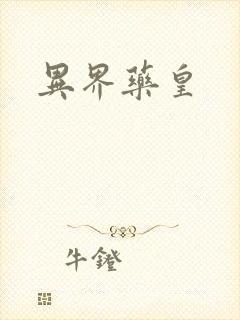 異界藥皇
牛鐙